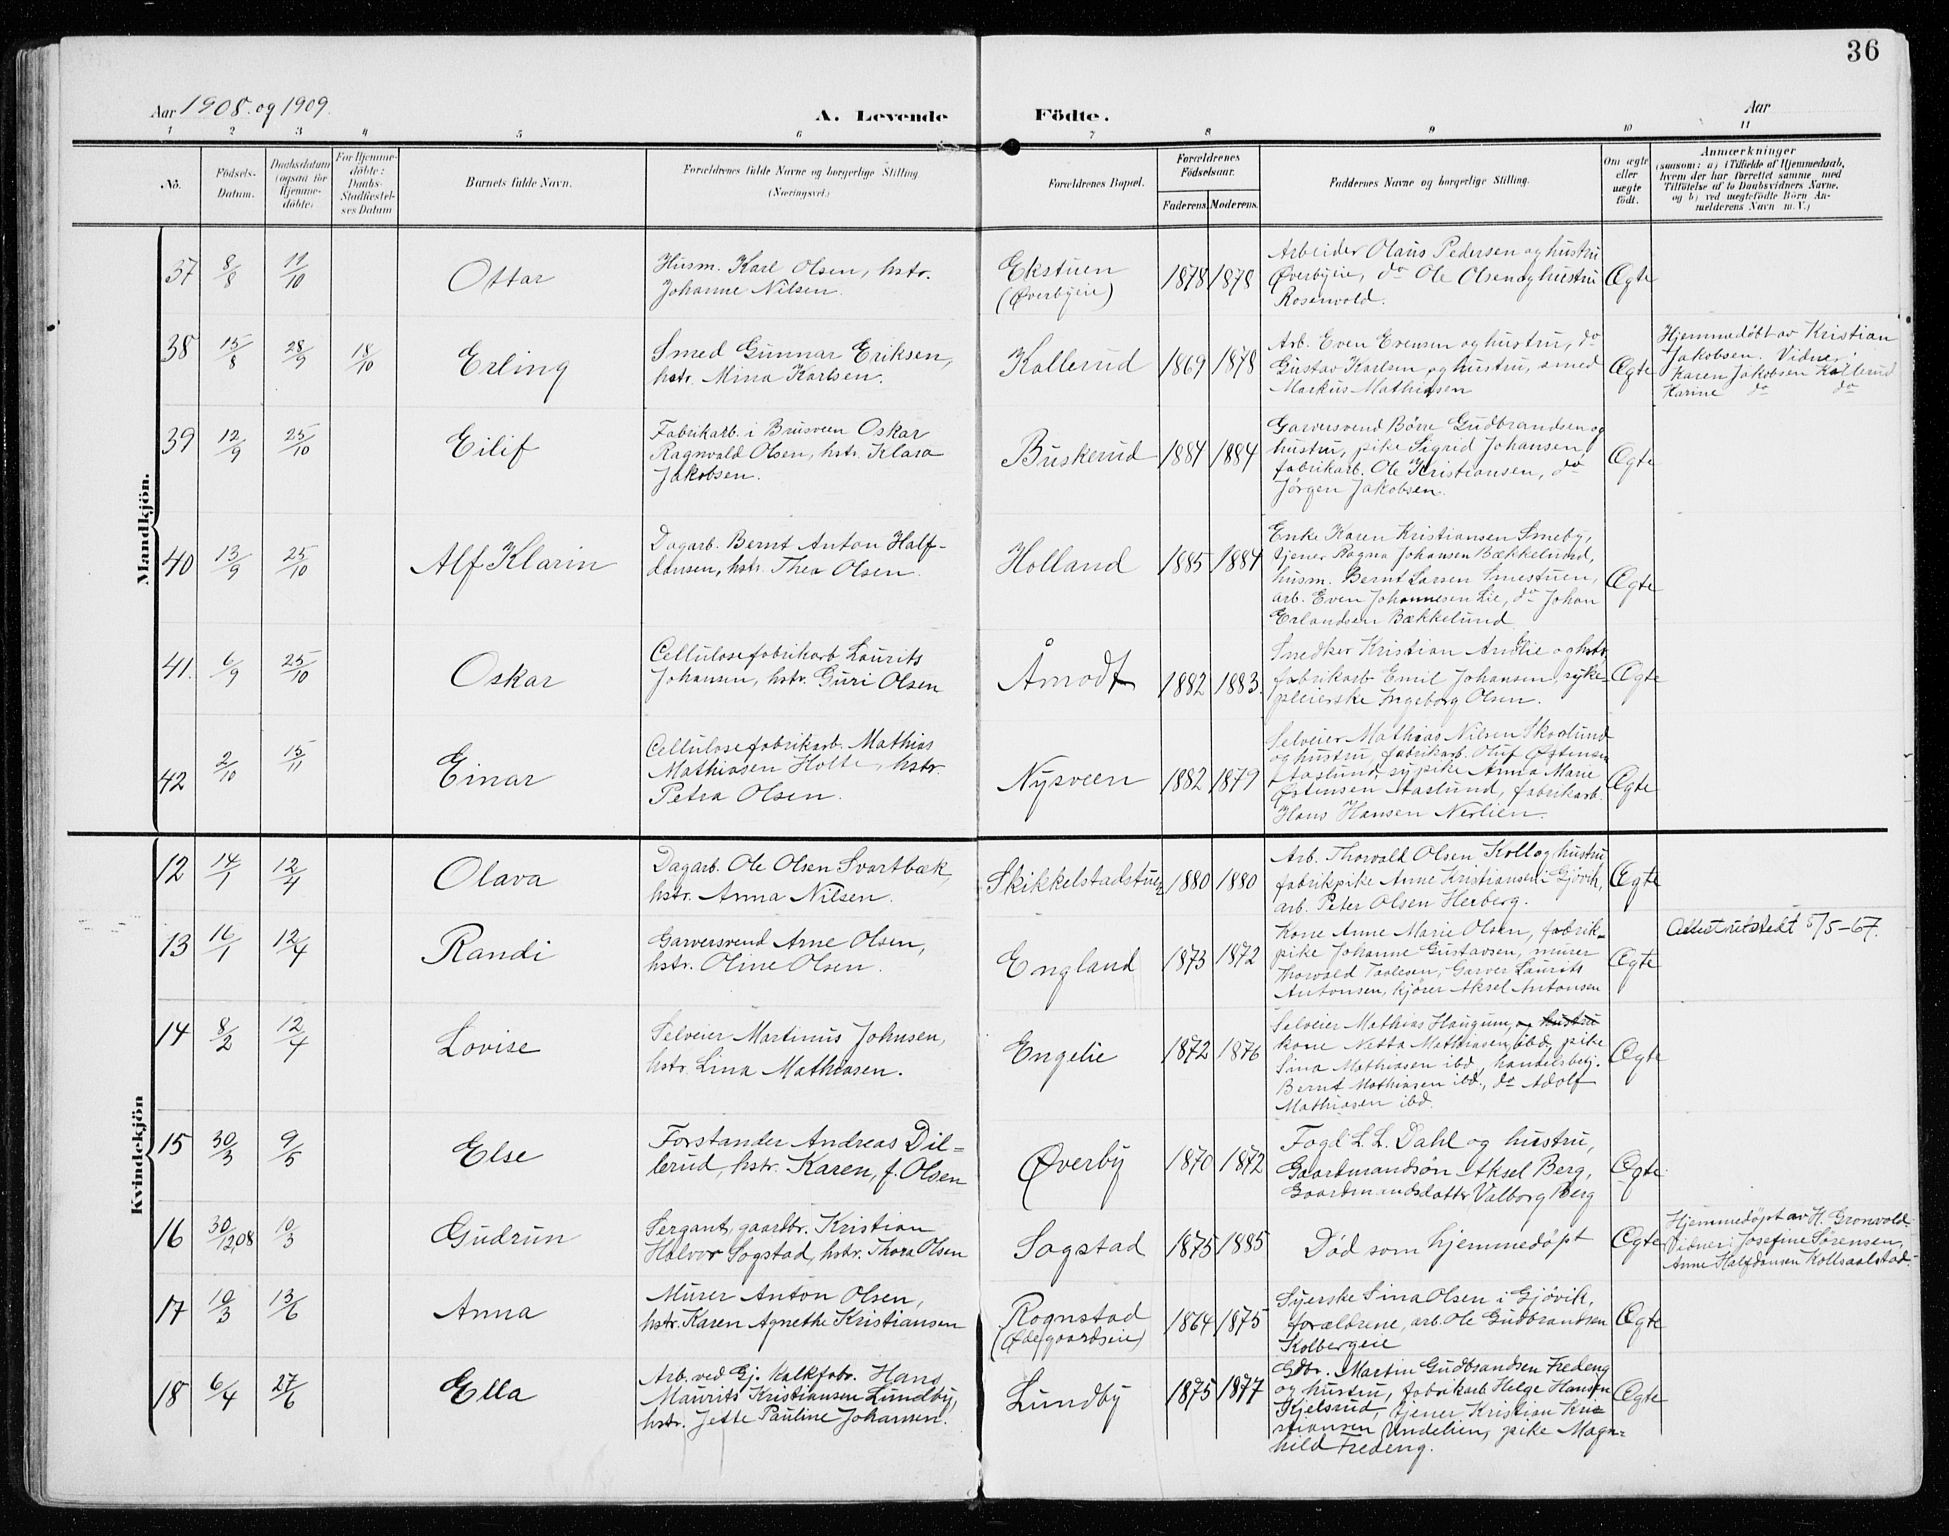 36
Aar 1908. og 1909.
A. Levende Födte.
Aar
1 2 3 4 5 6 7 8 9 10 11
No.
Födsels-
Datum.
Daabsdatum
(ogsaa for
Hjemme-
döbte.
For Hjemme-
döbte:
Daabs-
Stadfæstel-
ses Datum
Barnets fulde Navn.
Forældrenes fulde Navne og borgerlige Stilling
(Næringsvei.)
Forældrenes Bopæl.
Forældrenes
Födselsaar.
Faderens. Moderens.
Faddernes Navne og borgerlige Stilling.
Om ægte
eller
uægte
födt.
Anmærkninger
(saasom: a) i Tilfælde af Hjemmedaab,
hvem der har forrettet samme med
Tilföielse af to Daabsvidners Navne.
og b) ved uægtefödte Börn An-
melderens Navn m. V.)
Mandkjön.
37 8/8 11/10 Ottar
Husm. Karl Olsen, hstr.
Johanne Nilsen.
Ekstuen
(Øverbyeie)
1878 1878
Arbeider Olaus Pedersen og hustru
Øverbyeie, do Ole Olsen og hustru
Rosenvold.
Ægte
38 15/8 28/9 18/10 Erling
Smed Gunnar Eriksen,
hstr. Mina Karlsen.
Kallerud
1869 1878
Arb. Even Evensen og hustru, do
Gustav Karlsen og hustru, smed
Markus Mathiasen
Ægte
Hjemmedøbt av Kristian
Jakobsen. Vidner:
Karen Jakobsen Kallerud
Karine do do
39 12/9 25/10 Eilif
Fabrikarb. i Brusveen Oskar
Ragnvald Olsen, hstr. Klara
Jakobsen.
Buskerud
1884 1884
Garversvend Børre Gudbrandsen og
hustru, pike Sigrid Johansen,
fabrikarb. Ole Kristiansen, do
Jørgen Jakobsen.
Ægte
40 13/9 25/10 Alf Klarin
Dagarb. Bernt Anton Half-
dansen, hstr. Thea Olsen.
Holland
1885 1884
Enke Karen Kristiansen Smeby,
tjener Ragna Johansen Bækkelund,
husm. Bernt Larsen Smestuen,
arb. Even Johannesen Lie, do Johan
Erlandsen Bækkelund
Ægte
41. 6/9 25/10 Oskar
Cellulosefabrikarb. Laurits
Johansen, hstr. Guri Olsen
Åmodt
1882 1883.
Snedker Kristian Amlie og hstr.
fabrikarb. Emil Johansen, syke-
pleierske Ingeborg Olsen.
Ægte
42 2/10 15/11 Einar
Cellulosefabrikarb. Mathias
Mathiasen Holte, hstr.
Petra Olsen.
Nysveen
1882 1879
Selveier Mathias Nilsen Skovlund
og hustru, fabrikarb. Oluf Østensen
Aaslund, sypike Anna Marie
Østensen Aaslund, fabrikarb.
Hans Hansen Nerlien.
Ægte
Kvindekjön
12 14/1 12/4 Olava
Dagarb. Ole Olsen Svartbæk,
hstr. Anna Nilsen.
Skikkelstadstuen
1880 1880
Arb. Thorvald Olsen Koll og hustru
fabrikpike Anne Kristiansen i Gjøvik,
arb. Peter Olsen Heeberg.
Ægte
13 16/1 12/4 Randi
Garversvend Arne Olsen,
hstr. Oline Olsen.
England
1873 1872
Kone Anne Marie Olsen, fabrik-
pike Johanne Gustavsen, murer
Thorvald Paulsen, Garver Laurits
Antonsen, kjører Aksel Antonsen
Ægte
Attest utstedt 5/5-67.
14 8/2 12/4 Lovise
Selveier Martinus Johnsen,
hstr. Lina Mathiasen.
Engelie
1872 1876
Selveier Mathias Haugum, og hustru
kone Netta Mathiasen ibd, pike
Sina Mathiasen ibd, handelsbetj.
Bernt Mathiasen ibd., do Adolf
Mathiasen ibd.
Ægte
15 30/3 9/5 Else
Forstander Andreas Dil-
lerud, hstr. Karen, f. Olsen
Øverby
1870 1872
Fogd L. L. Dahl og hustru,
Gaardmandsøn Aksel Berg,
Gaardmandsdatter Valborg Berg
Ægte
16 30/12 08 10/3 Gudrun
Sergant, gaardbr. Kristian
Halvor Sogstad, hstr. Thora Olsen
Sogstad
1875 1885
Død som hjemmedøpt
Ægte
Hjemmedøpt av H. Grønvold
Vidner: Josefine Sørensen,
Anne Halfdansen Kollsaalstad.
17 10/3 13/6 Anna
Murer Anton Olsen,
hstr. Karen Agnethe Kristiansen
Rognstad
(Ødegaardseie)
1864 1875
Syerske Sina Olsen i Gjøvik,
forældrene, arb. Ole Gudbrandsen
Kolbergeie
Ægte
18 6/4 27/6 Ella
Arb. ved Gj. Kalkfabr. Hans
Maurits Kristiansen Lundby,
hstr. Jette Pauline Johansen.
Lundby
1875 1877
Gdbr. Martin Gudbrandsen Fredeng
og hustru, fabrikarb. Helge Hansen
Kjelsrud, tjener Kristian Kri-
stiansen Undelien, pike Magn-
hild Fredeng.
Ægte